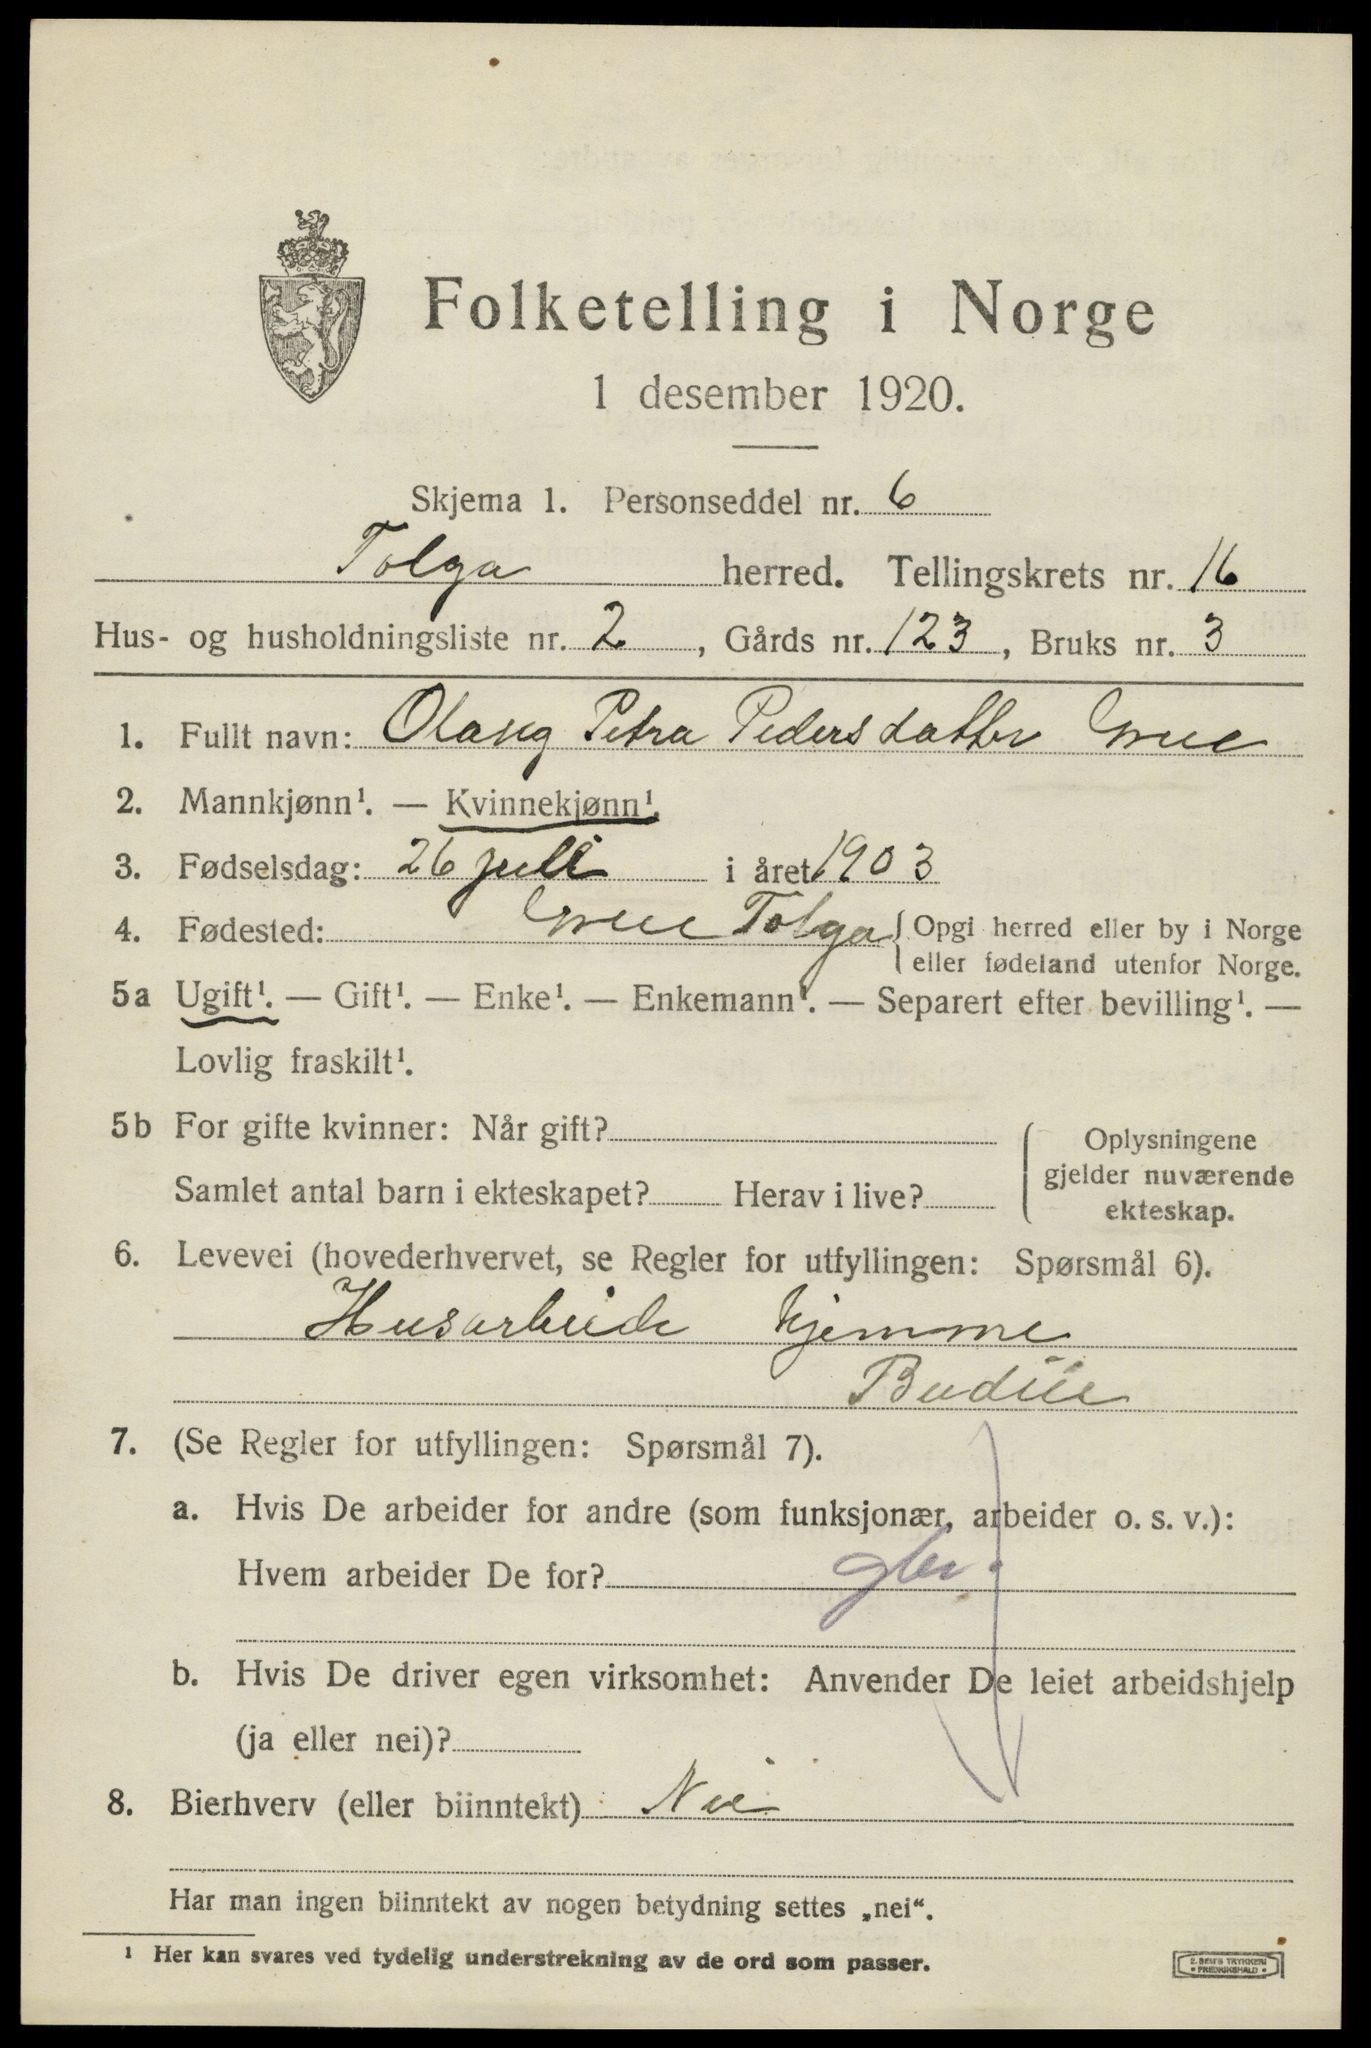 Folketelling i Norge
1 desember 1920.
Skjema 1. Personseddel nr. 6
Tolga herred. Tellingskrets nr. 16
Hus- og husholdningsliste nr. 2, Gårds nr. 123, Bruks nr. 3
1. Fullt navn: Olaug Petra Pedersdatter
2. Mannkjønn¹. — Kvinnekjønn¹.
3. Fødselsdag: 26 juli i året 1903
4. Fødested: Tolga { Opgi herred eller by i Norge
eller fødeland utenfor Norge.
5a Ugift¹. — Gift¹. — Enke¹. — Enkemann¹. — Separert efter bevilling¹. —
Lovlig fraskilt¹.
5b For gifte kvinner: Når gift? { Oplysningene
gjelder nuværende
Samlet antal barn i ekteskapet? Herav i live? ekteskap.
6. Levevei (hovederhvervet, se Regler for utfyllingen: Spørsmål 6).
Husarbeide hjemme
Budeie
7. (Se Regler for utfyllingen: Spørsmål 7).
a. Hvis De arbeider for andre (som funksjonær, arbeider o. s. v.):
Hvem arbeider De for?
b. Hvis De driver egen virksomhet: Anvender De leiet arbeidshjelp
(ja eller nei)?
8. Bierhverv (eller biinntekt) Nei
Har man ingen biinntekt av nogen betydning settes „nei“.
¹ Her kan svares ved tydelig understrekning av de ord som passer.
E. SEM'S TRYKKERI
• FREDRIKSHALD •